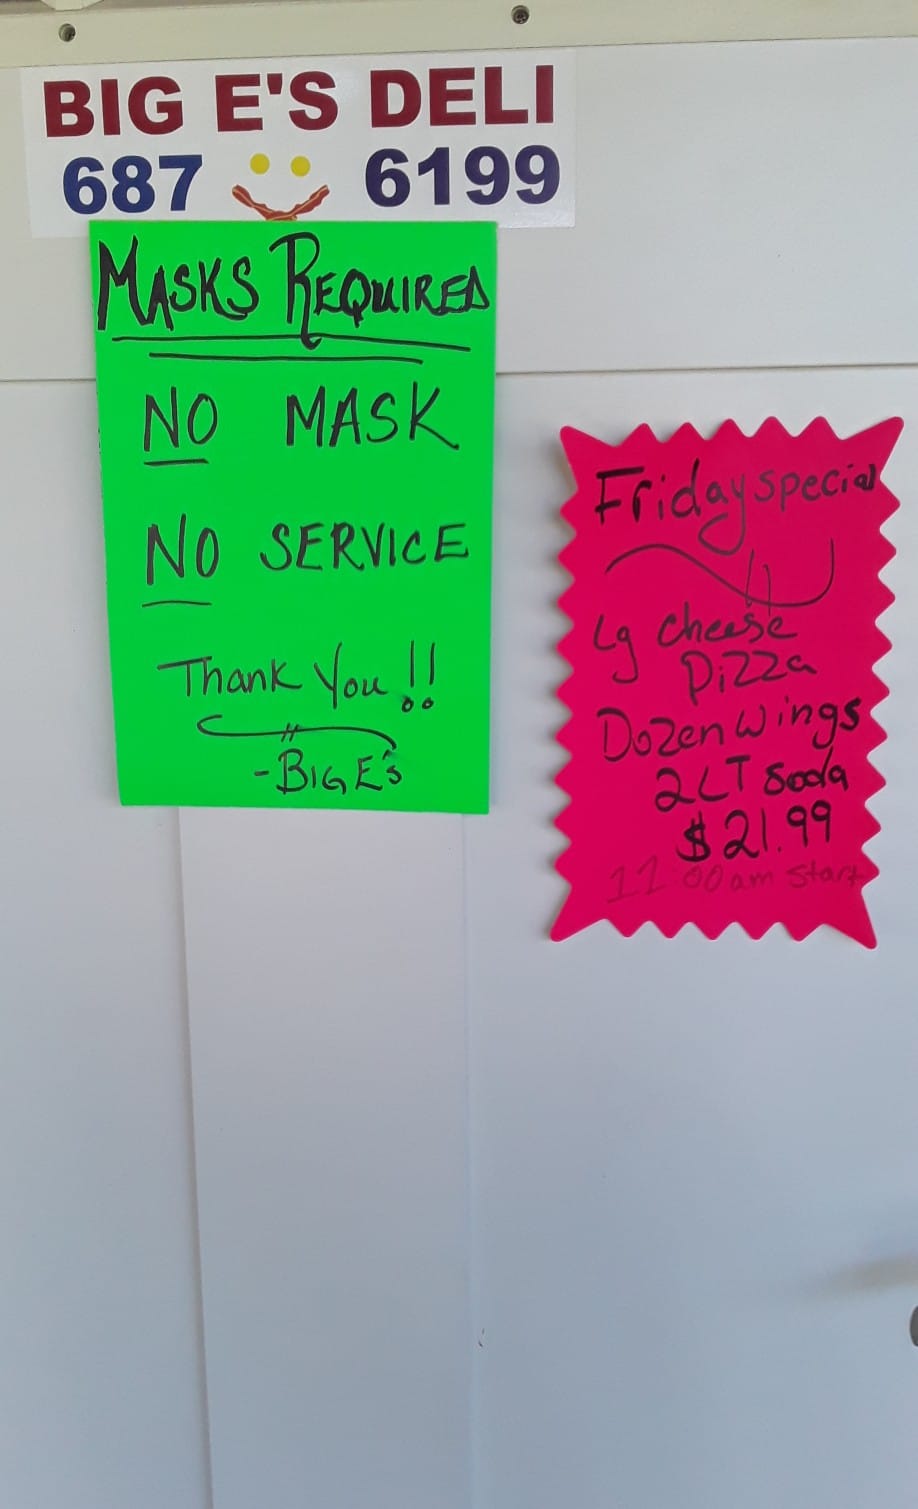 BIG E'S DELI
687 6199
MASKS REQUIRED
NO MASK
NO SERVICE
Thank You!!
-BIG E's
Friday special
Lg cheese
Pizza
Dozen wings
2LT Soda
$21.99
11:00am start